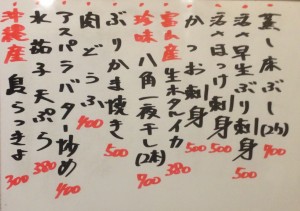 蒸し床ぶし(2ケ) 400
活〆早生ぶり刺身 500
活〆ほっけ刺身 500
かつお刺身 500
富山産 生ホタルイカ 380
珍味 八角一夜干し(2本) 700
ぶりかま焼き 500
肉どうふ 400
アスパラバター炒め 400
水茄子天ぷら 380
沖縄産 島らっきょ 300